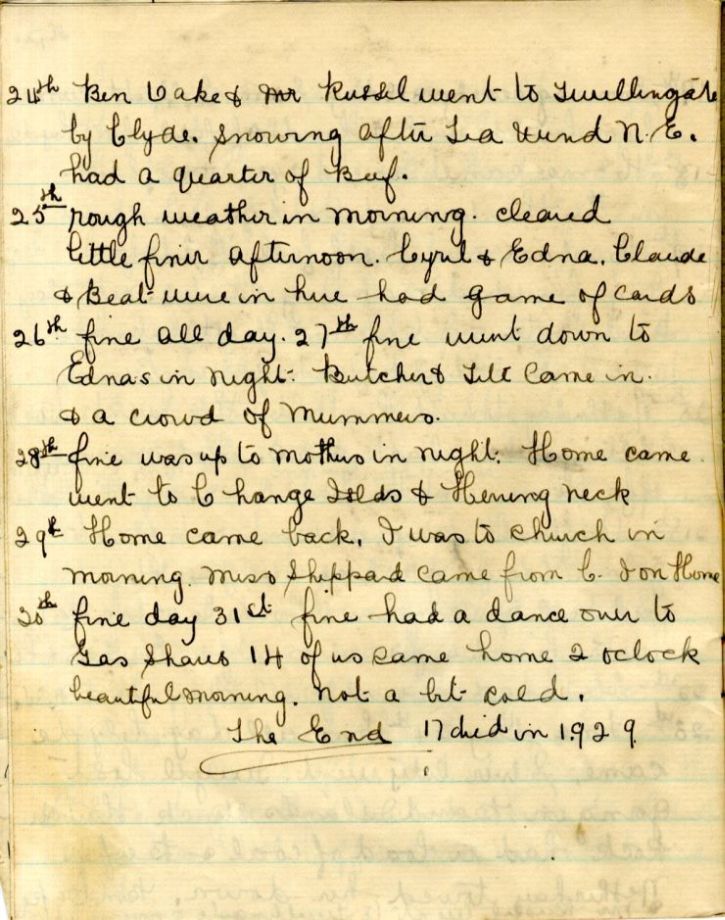 24th Ben Vake & Mr Russel went to Twillingate
by Clyde. Snowing after Tea Wind N.E.
had a quarter of Beef.
25th rough weather in morning. cleared
little finer afternoon. Cyril & Edna, Claude
& Beat were in here had game of cards
26th fine all day. 27th fine went down to
Ednas in night. Butcher & Till Came in.
& a crowd of Mummers.
28th fine was up to Mothers in night. Home came
went to Change Islds & Herring Neck
29th Home came back. I was to church in
morning. Miss Sheppard came from C. I on Home
30th fine day 31st fine had a dance over to
Gas Shaws 14 of us came home 2 oclock
beautiful morning. not a bit cold.
The End 17 died in 1929